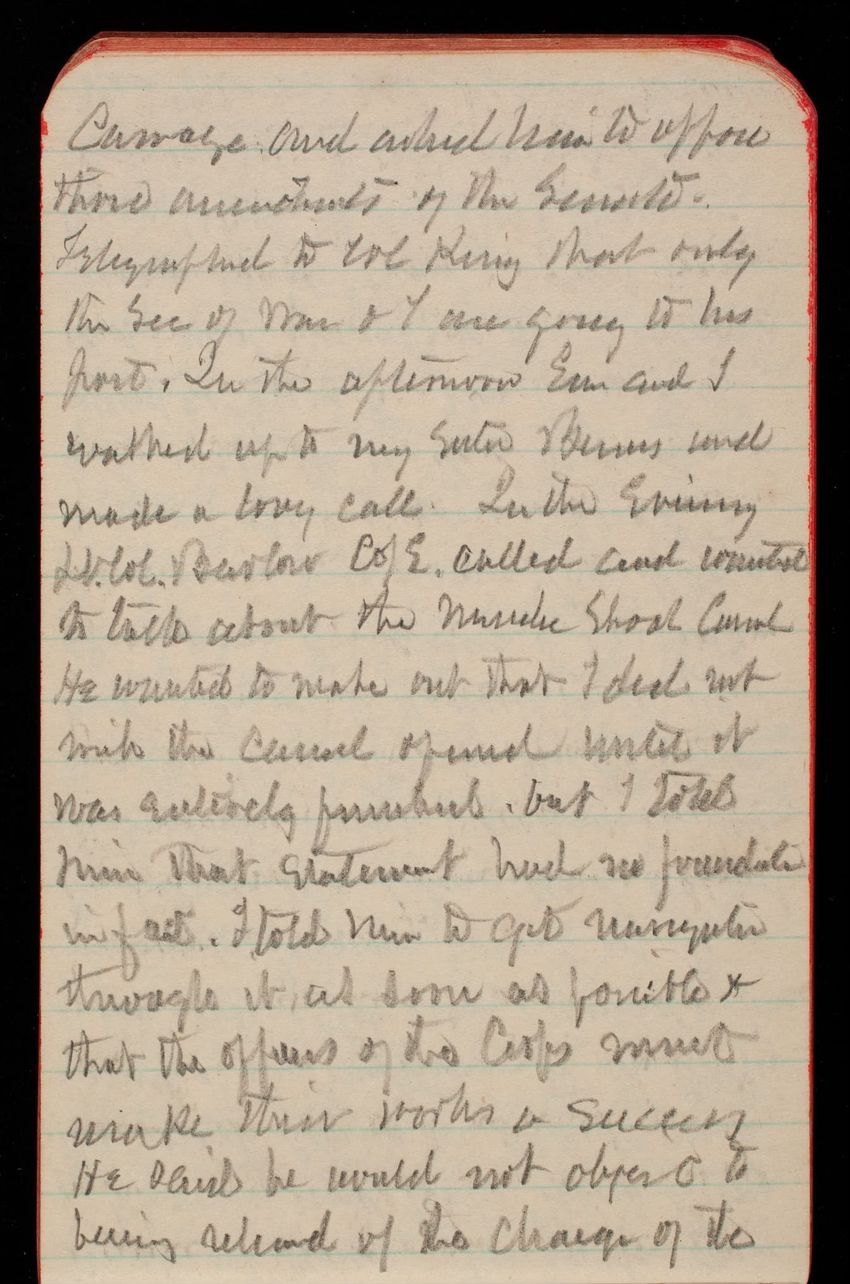 Carriage. and asked him to oppose
those amendments of the Senate.
Telegraphed to Col King that only
the Sec of War & I are going to his
post. In the afternoon Em and I
walked up to my Sister Bemis and
made a long call. In the Evening
Lt. Col. Barlow C of E. called and wanted
to talk about the Muscle Shoal Canal
He wanted to make out that I did not
wish the canal opened until it
was entirely finished. but I told
him that statement had no foundation
in fact. I told him to get navigation
through it as soon as possible &
that the officers of the Corps must
make their works a success
He said he would not object to
being relieved of the charge of the